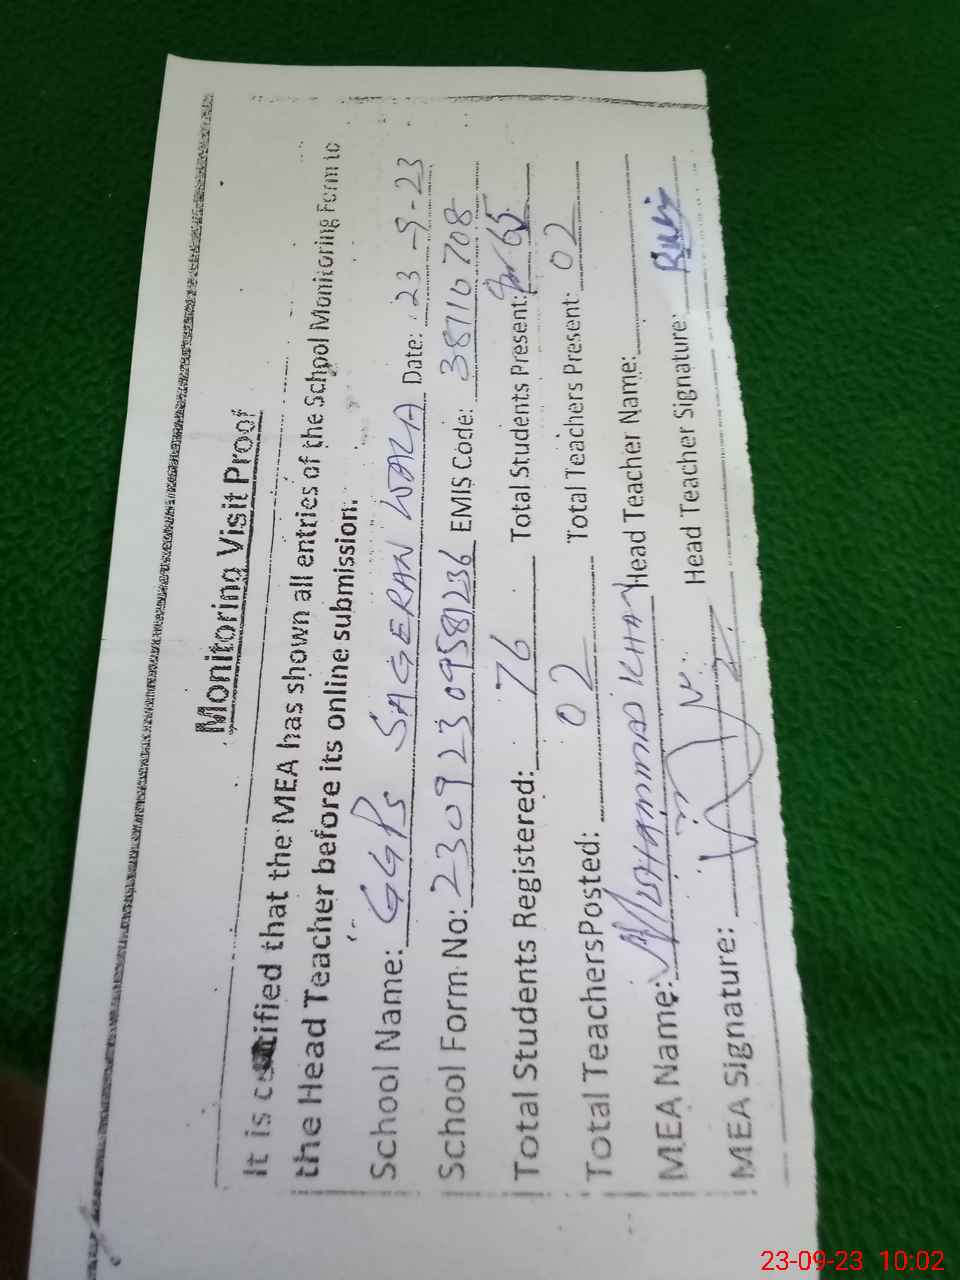 Monitoring Visit Proof
It is certified that the MEA has shown all entries of the School Monitoring Form to
the Head Teacher before its online submission.
School Name: GGPS SAGERAN WALA Date: 23-9-23
School Form No: 230923 09581236 EMIS Code: 38110708
Total Students Registered: 76 Total Students Present: 65
Total TeachersPosted: 02 Total Teachers Present: 02
MEA Name: MUHAMMAD KHAN Head Teacher Name:
MEA Signature: Head Teacher Signature:
23-09-23 10:02